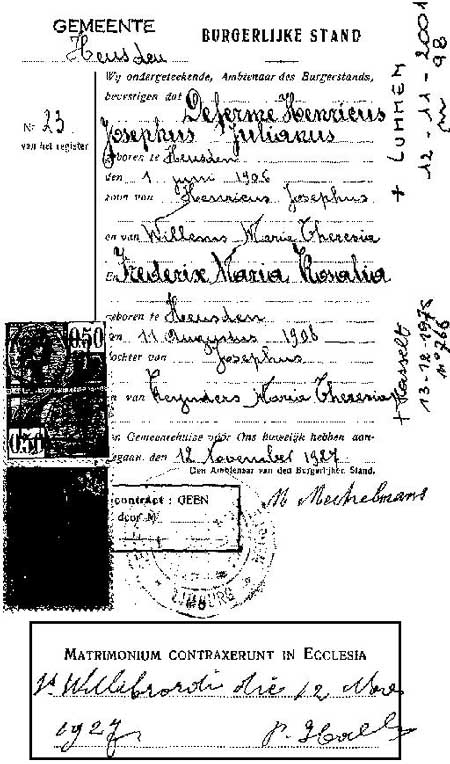 GEMEENTE
Heusden
BURGERLIJKE STAND
Wij ondergeteekende, Ambtenaar des Burgerstands,
bevestigen dat Deferme Henricus
Nr 23
Josephus Julianus
van het register
geboren te Heusden
den 1 juni 1906
zoon van Henricus Josephus
en van Willems Maria Theresia
En Frederix Maria Rosalia
geboren te Heusden
den 11 Augustus 1906
dochter van Josephus
en van Reynders Maria Theresia
Gemeentehuize vóór Ons huwelijk hebben aan-
gegaan, den 12 November 1927
Den Ambtenaar van den Burgerlijken Stand.
contract : GEEN
door M
M Mechelmans
0.50
0.50
LIMBURG
+ LUMMEN
12-11-2001
98
+ Hasselt
13-12-1978
n° 766
MATRIMONIUM CONTRAXERUNT IN ECCLESIA
St Willebrordi die 12 Nov
1927